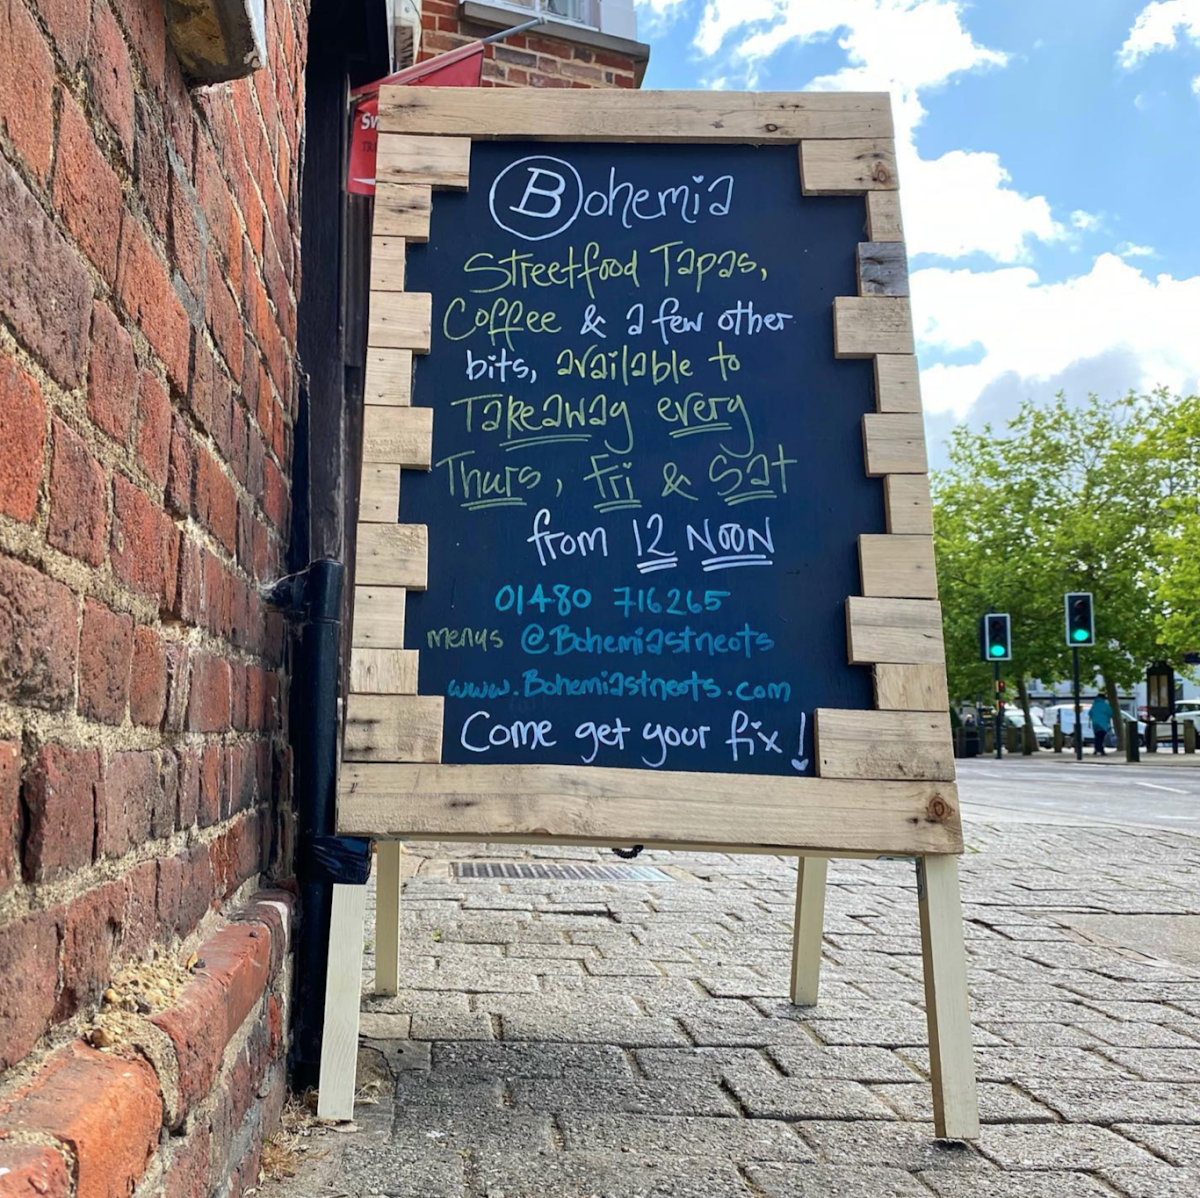 Bohemia
Streetfood Tapas,
Coffee & a few other
bits, available to
Takeaway every
Thurs, Fri & Sat
from 12 NOON
01480 716265
menus @Bohemiastneots
www.Bohemiastneots.com
Come get your fix!